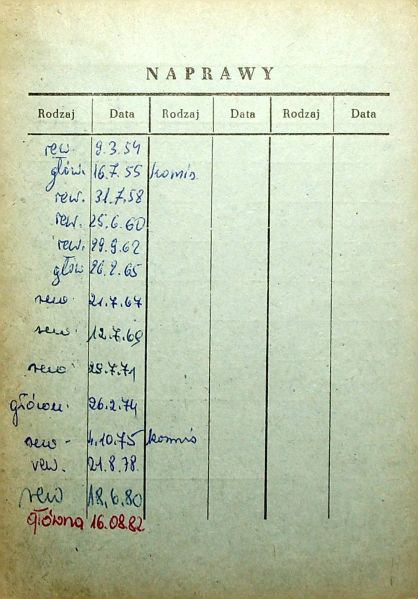 NAPRAWY
Rodzaj Data Rodzaj Data Rodzaj Data
rew. 9.3.54
głów. 16.7.55 komis
rew. 31.7.58
rew. 25.6.60
rew. 29.9.62
głów 26.2.65
rew. 21.7.67
rew. 12.7.69
rew. 29.7.71
główn. 26.2.74
rew - 4.10.75 komis
rew. 21.8.78.
rew 18.6.80
główna 16.08.82